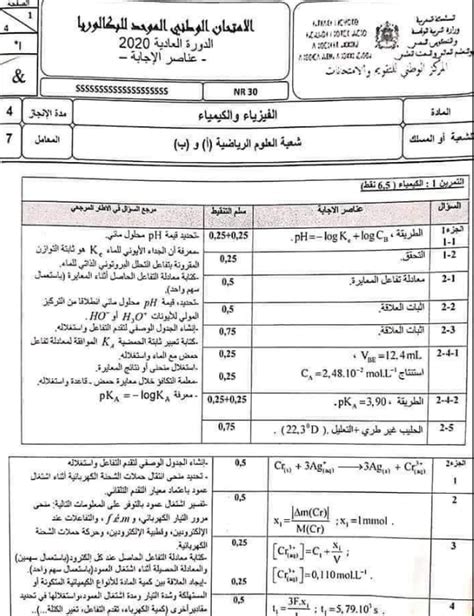 الصفحة
1
4
الامتحان الوطني الموحد للبكالوريا
الدورة العادية 2020
- عناصر الإجابة -
المملكة المغربية
وزارة التربية الوطنية
المركز الوطني للتقويم والامتحانات
&
SSSSSSSSSSSSSSSSSSSS
NR 30
المادة
الفيزياء والكيمياء
مدة الإنجاز
4
الشعبة أو المسلك
شعبة العلوم الرياضية (أ) و (ب)
المعامل
7
التمرين 1 : الكيمياء ( 6,5 نقط)
السؤال
عناصر الاجابة
سلم التنقيط
مرجع السؤال في الاطار المرجعي
الجزء1
1-1
الطريقة ، pH = – log Ke + log CB .
0,25+0,25
-تحديد قيمة pH محلول مائي.
1-2
التحقق.
0,25
-معرفة أن الجداء الأيوني للماء Ke هو ثابتة التوازن
المقرونة بتفاعل التحلل البروتوني الذاتي للماء.
2-1
معادلة تفاعل المعايرة.
0,5
-كتابة معادلة التفاعل الحاصل أثناء المعايرة (باستعمال
سهم واحد).
2-2
اثبات العلاقة.
0,5
-تحديد، قيمة pH محلول مائي انطلاقا من التركيز
المولي للأيونات H3O+ أو HO- .
2-3
اثبات العلاقة.
0,75
-إنشاء الجدول الوصفي لتقدم التفاعل واستغلاله.
-كتابة تعبير ثابتة الحمضية KA الموافقة لمعادلة تفاعل
حمض مع الماء واستغلاله.
2-4-1
VBE = 12,4 mL ،
0,25
-استغلال منحنى أو نتائج المعايرة.
استنتاج CA = 2,48.10-2 mol.L-1
0,25
-معلمة التكافؤ خلال معايرة حمض - قاعدة واستغلاله.
2-4-2
الطريقة ، pKA = 3,90 .
0,25+0,25
-معرفة pKA = –log KA
2-5
الحليب غير طري +التعليل. ( 22,3°D ) .
0,75
الجزء2
1
Cr(s) + 3Ag+(aq) → 3Ag(s) + Cr3+(aq)
0,5
-إنشاء الجدول الوصفي لتقدم التفاعل واستغلاله.
-تحديد منحى انتقال حملات الشحنة الكهربائية أثناء اشتغال
عمود باعتماد معيار التطور التلقائي.
2
x1 = |Δm(Cr)| / M(Cr) ; x1 = 1mmol .
0,5
-تفسير اشتغال عمود بالتوفر على المعلومات التالية: منحى
مرور التيار الكهربائي، و f.é.m، والتفاعلات عند
الإلكترودين، وقطبية الإلكترودين، وحركة حملات الشحنة
الكهربائية.
3
[Cr3+(aq)] = C1 + x1/V ;
[Cr3+(aq)] = 0,110 mol.L-1
0,5
-كتابة معادلة التفاعل الحاصل عند كل إلكترود(باستعمال سهمين)
والمعادلة الحصيلة أثناء اشتغال العمود(باستعمال سهم واحد).
-إيجاد العلاقة بين كمية المادة للأنواع الكيميائية المتكونة أو
المستهلكة وشدة التيار ومدة اشتغال العمود،واستغلالها في تحديد
مقادير أخرى (كمية الكهرباء، تقدم التفاعل، تغير الكتلة...).
4
t1 = 3F.x1 ; t1 = 5,79.103 s .
0,5